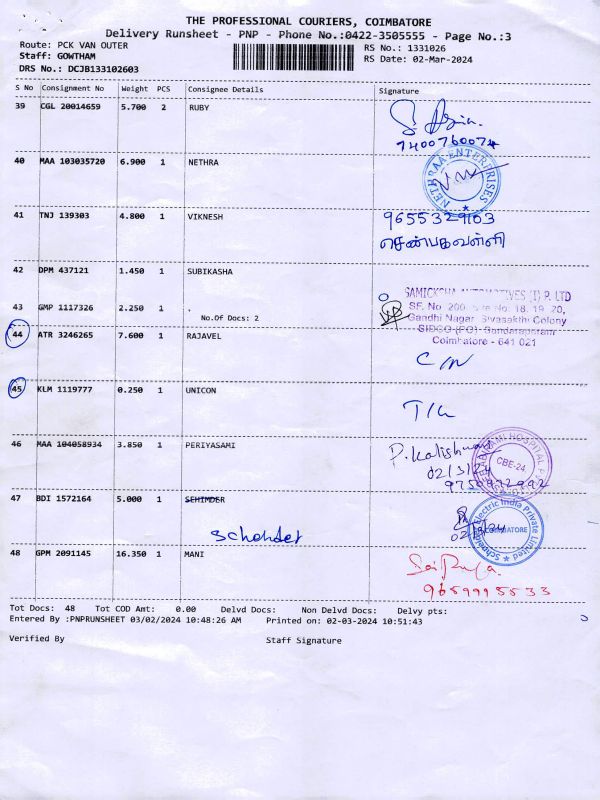 THE PROFESSIONAL COURIERS, COIMBATORE
Delivery Runsheet - PNP - Phone No.:0422-3505555 - Page No.:3
Route: PCK VAN OUTER
RS No.: 1331026
Staff: GOWTHAM
RS Date: 02-Mar-2024
DRS No.: DCJB133102603
S No Consignment No Weight PCS Consignee Details Signature
39 CGL 20014659 5.700 2 RUBY
7400760074
40 MAA 103035720 6.900 1 NETHRA
NETHRAA ENTERPRISES
41 TNJ 139303 4.800 1 VIKNESH 9655329103
செண்பகவள்ளி
42 DPM 437121 1.450 1 SUBIKASHA
SAMICKSHA AUTOMOTIVES (I) P. LTD
43 GMP 1117326 2.250 1 .
SF. No. 200, Site No: 18, 19, 20,
No.Of Docs: 2
Gandhi Nagar, Sivasakthi Colony
SIDCO (PO), Sundarapuram
Coimbatore - 641 021
44 ATR 3246265 7.600 1 RAJAVEL
C/N
45 KLM 1119777 0.250 1 UNICON
46 MAA 104058934 3.850 1 PERIYASAMI
HOSPITAL
CBE-24
02/3/24
47 BDI 1572164 5.000 1 SEHINDER
Schender
Electric India Private Limited
COIMBATORE
48 GPM 2091145 16.350 1 MANI
9659995533
Tot Docs: 48 Tot COD Amt: 0.00 Delvd Docs: Non Delvd Docs: Delvy pts:
Entered By :PNPRUNSHEET 03/02/2024 10:48:26 AM Printed on: 02-03-2024 10:51:43
Verified By Staff Signature